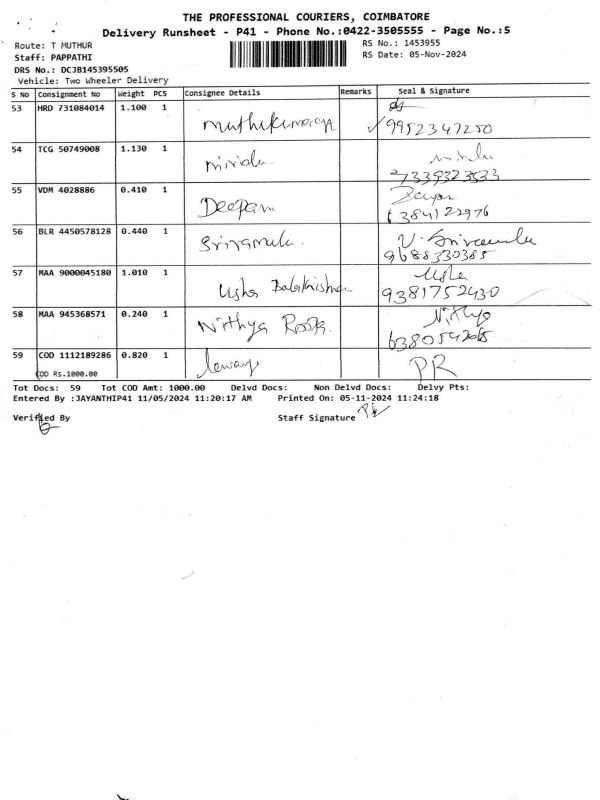 THE PROFESSIONAL COURIERS, COIMBATORE
Delivery Runsheet - P41 - Phone No.:0422-3505555 - Page No.:5
Route: T MUTHUR
RS No.: 1453955
Staff: PAPPATHI
RS Date: 05-Nov-2024
DRS No.: DCJB145395505
Vehicle: Two Wheeler Delivery
S No Consignment No Weight PCS Consignee Details Remarks Seal & Signature
53 HRD 731084014 1.100 1
muthukumaraja 9952347250
54 TCG 50749008 1.130 1
mridu
7339323533
55 VDM 4028886 0.410 1
Deepam
6384122976
56 BLR 4450578128 0.440 1
Sriramulu V. Sriramulu
9688330385
57 MAA 9000045180 1.010 1 Usha
Usha Balakrishnan 9381752430
58 MAA 945368571 0.240 1 Nithya
Nithya Rooba
59 COD 1112189286 0.820 1 PR
COD Rs.1000.00
Tot Docs: 59 Tot COD Amt: 1000.00 Delvd Docs: Non Delvd Docs: Delvy Pts:
Entered By :JAYANTHIP41 11/05/2024 11:20:17 AM Printed On: 05-11-2024 11:24:18
Verified By Staff Signature